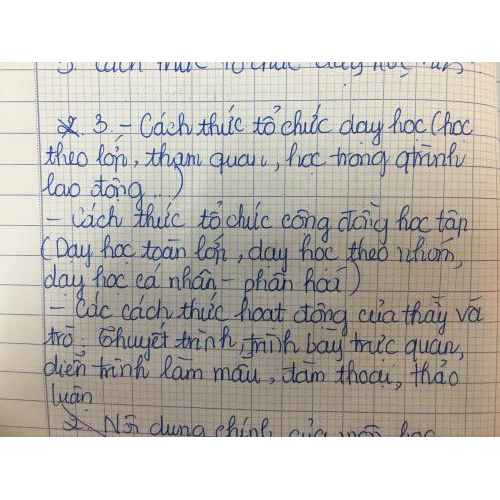 3. Cách thức tổ chức dạy học
3. - Cách thức tổ chức dạy học (học
theo lớp, tham quan, học trong qtrình
lao động...)
- Cách thức tổ chức cộng đồng học tập
(Dạy học toàn lớp, dạy học theo nhóm,
dạy học cá nhân - phân hoá)
- Các cách thức hoạt động của thầy và
trò: Thuyết trình, trình bày trực quan,
diễn trình làm mẫu, đàm thoại, thảo
luận
2. Nội dung chính của môn học